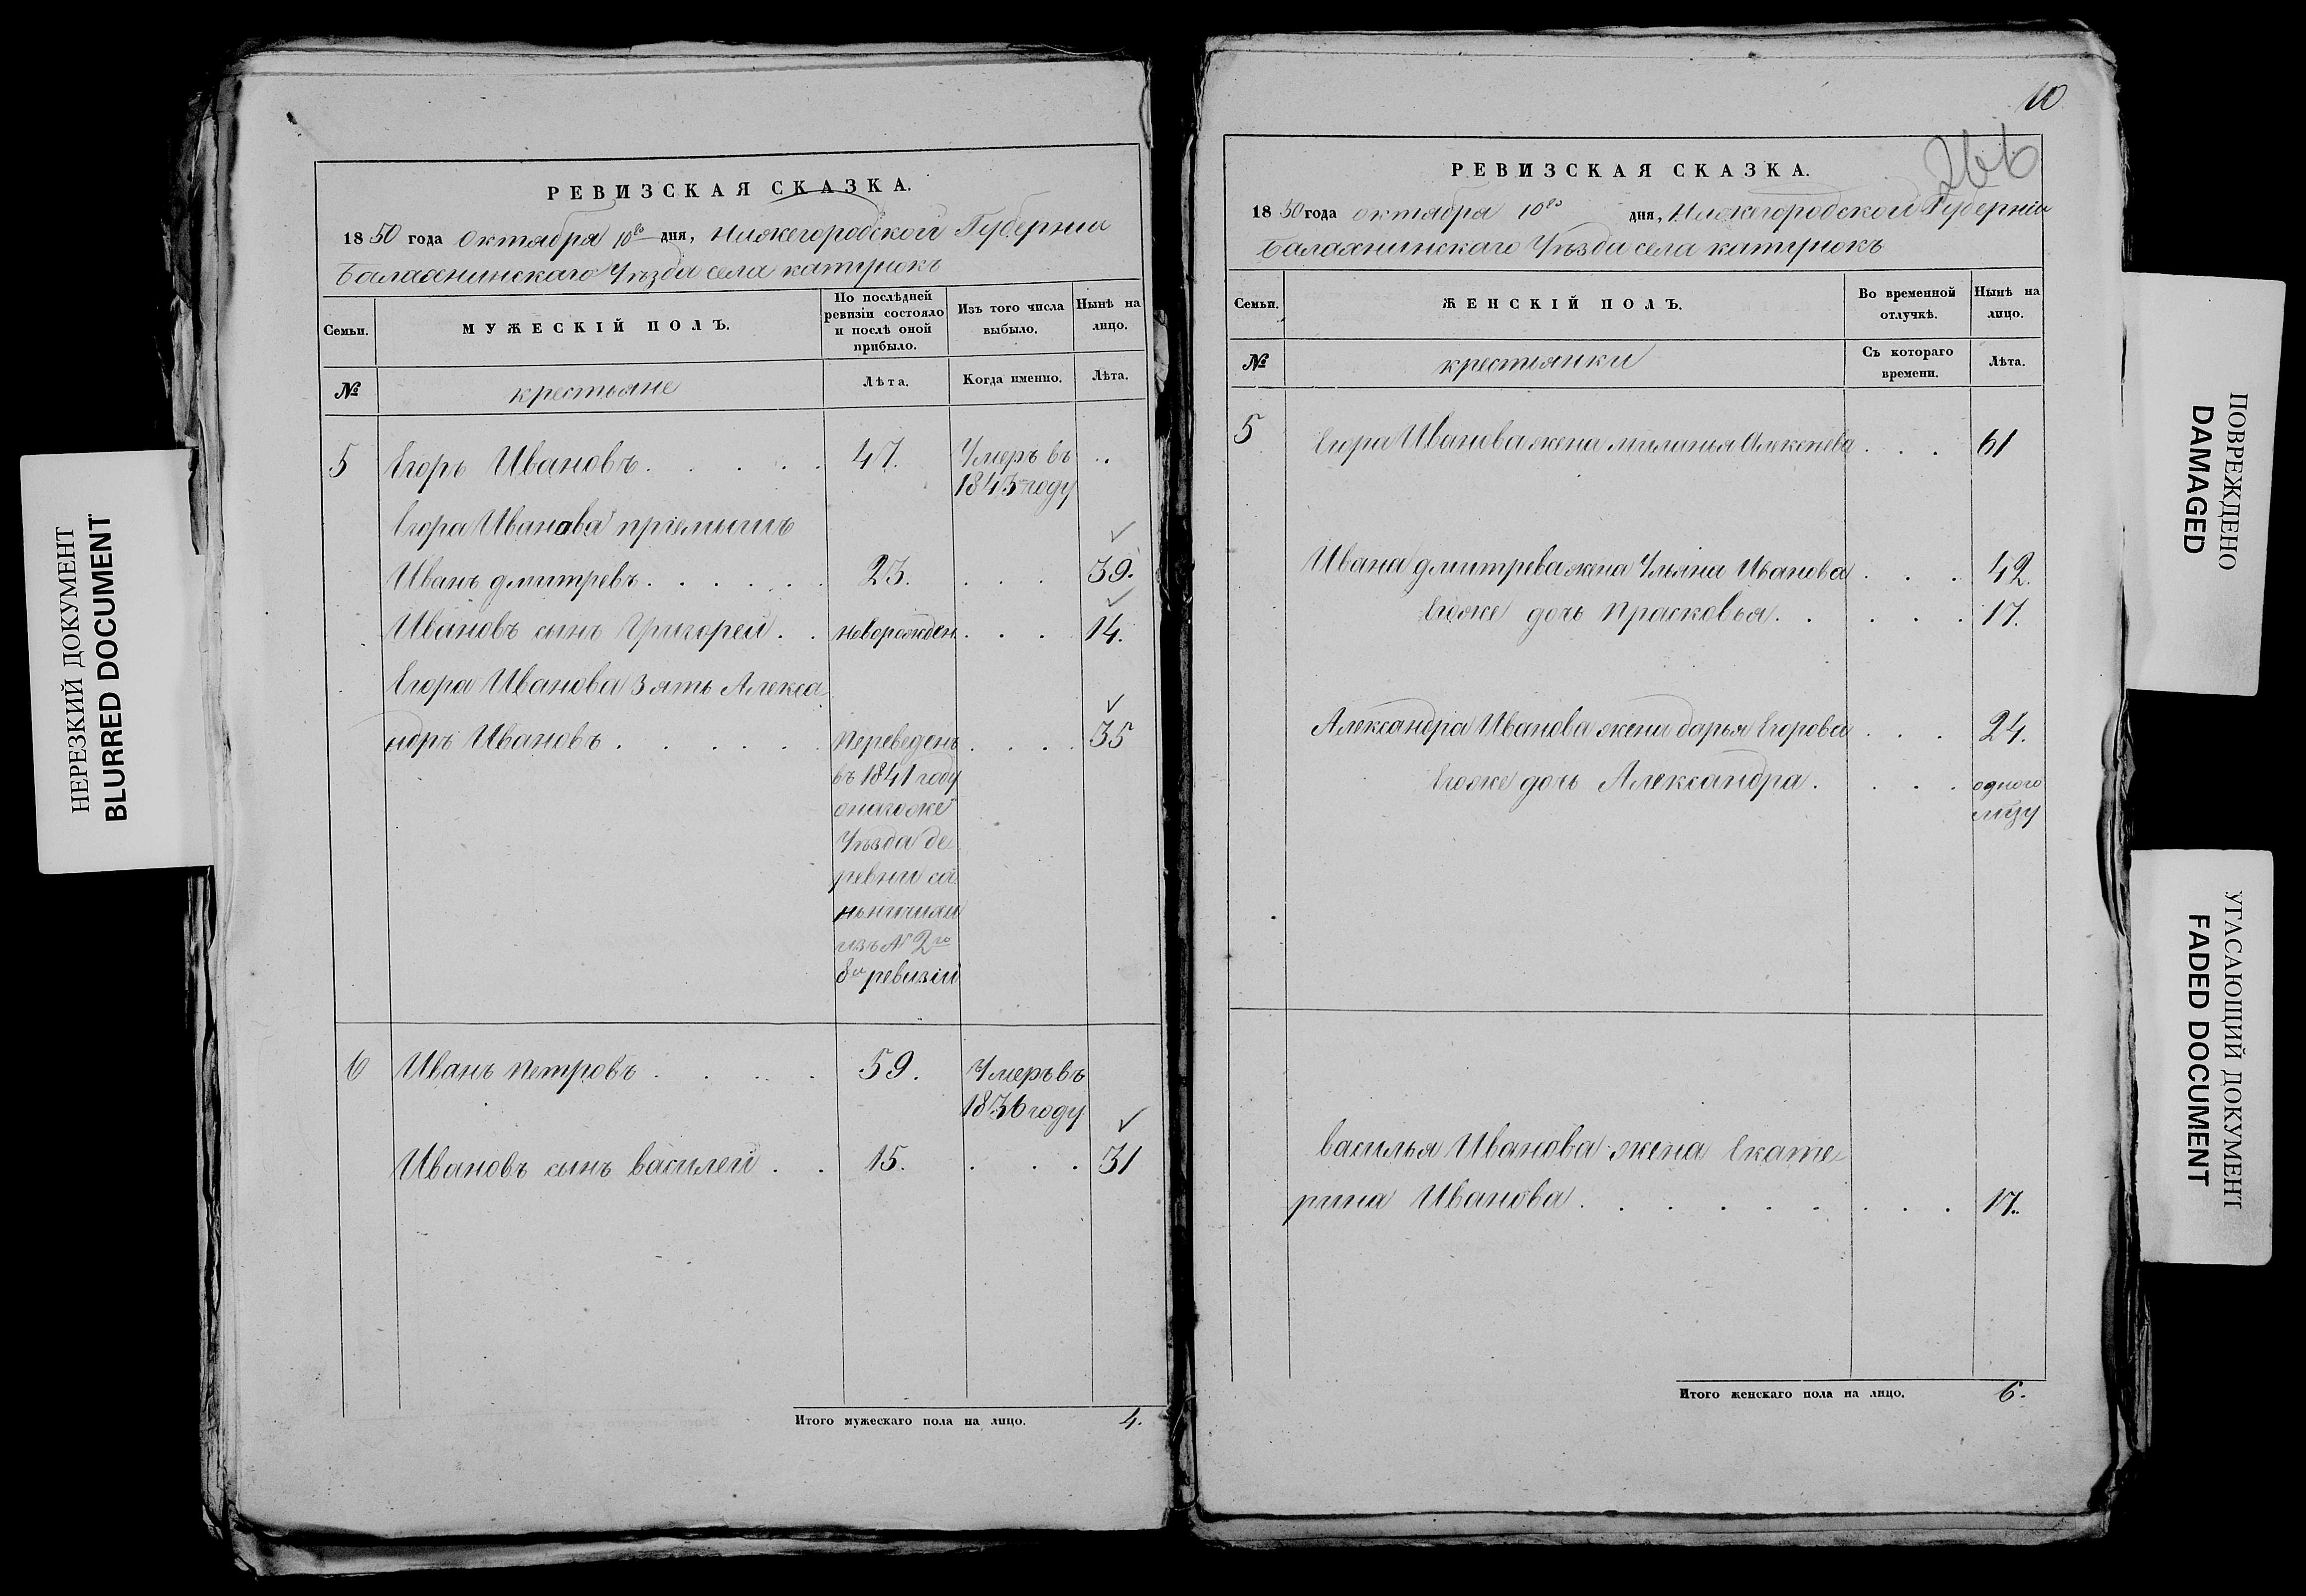 НЕРЕЗКИЙ ДОКУМЕНТ
BLURRED DOCUMENT
РЕВИЗСКАЯ СКАЗКА.
1850 года Октября 10го дня, Нижегородской Губернии
Балахнинского Уѣзда села катунокъ
Семьи.
МУЖЕСКІЙ ПОЛЪ.
По послѣдней ревизіи состояло и послѣ оной прибыло.
Изъ того числа выбыло.
Нынѣ на лицо.
№
крестьяне
Лѣта.
Когда именно.
Лѣта.
5 Егоръ Ивановъ. 47. Умеръ въ
1843 году
Егора Иванова пріемышъ
Иванъ дмитревъ. 23. 39.
Ивановъ сынъ Григорей. новорожден. 14.
Егора Иванова зять Алекса
ндръ Ивановъ. Переведенъ 35
въ 1841 году
онагоже
Уѣзда де
ревни
изъ № 2го
8й ревизіи
6 Иванъ Петровъ. 59. Умеръ въ
1836 году
Ивановъ сынъ василей. 15. 31
Итого мужескаго пола на лицо. 4.
10
266
РЕВИЗСКАЯ СКАЗКА.
1850 года октября 10го дня, Нижегородской Губерніи
Балахнинскаго Уѣзда села катунокъ
Семьи.
ЖЕНСКІЙ ПОЛЪ.
Во временной отлучкѣ.
Нынѣ на лицо.
№
крестьянки
Съ котораго времени.
Лѣта.
5 Егора Иванова жена Маланья Алексѣева 61
Ивана дмитрева жена Ульяна Иванова 42.
Егоже дочь Прасковья. 17.
Александра Иванова жена дарья Егорова 24.
Егоже дочь Александра. одного
мѣзу
василья Иванова жена Екате
рина Иванова. 17.
Итого женскаго пола на лицо. 6.
ПОВРЕЖДЕНО
DAMAGED
УГАСАЮЩИЙ ДОКУМЕНТ
FADED DOCUMENT